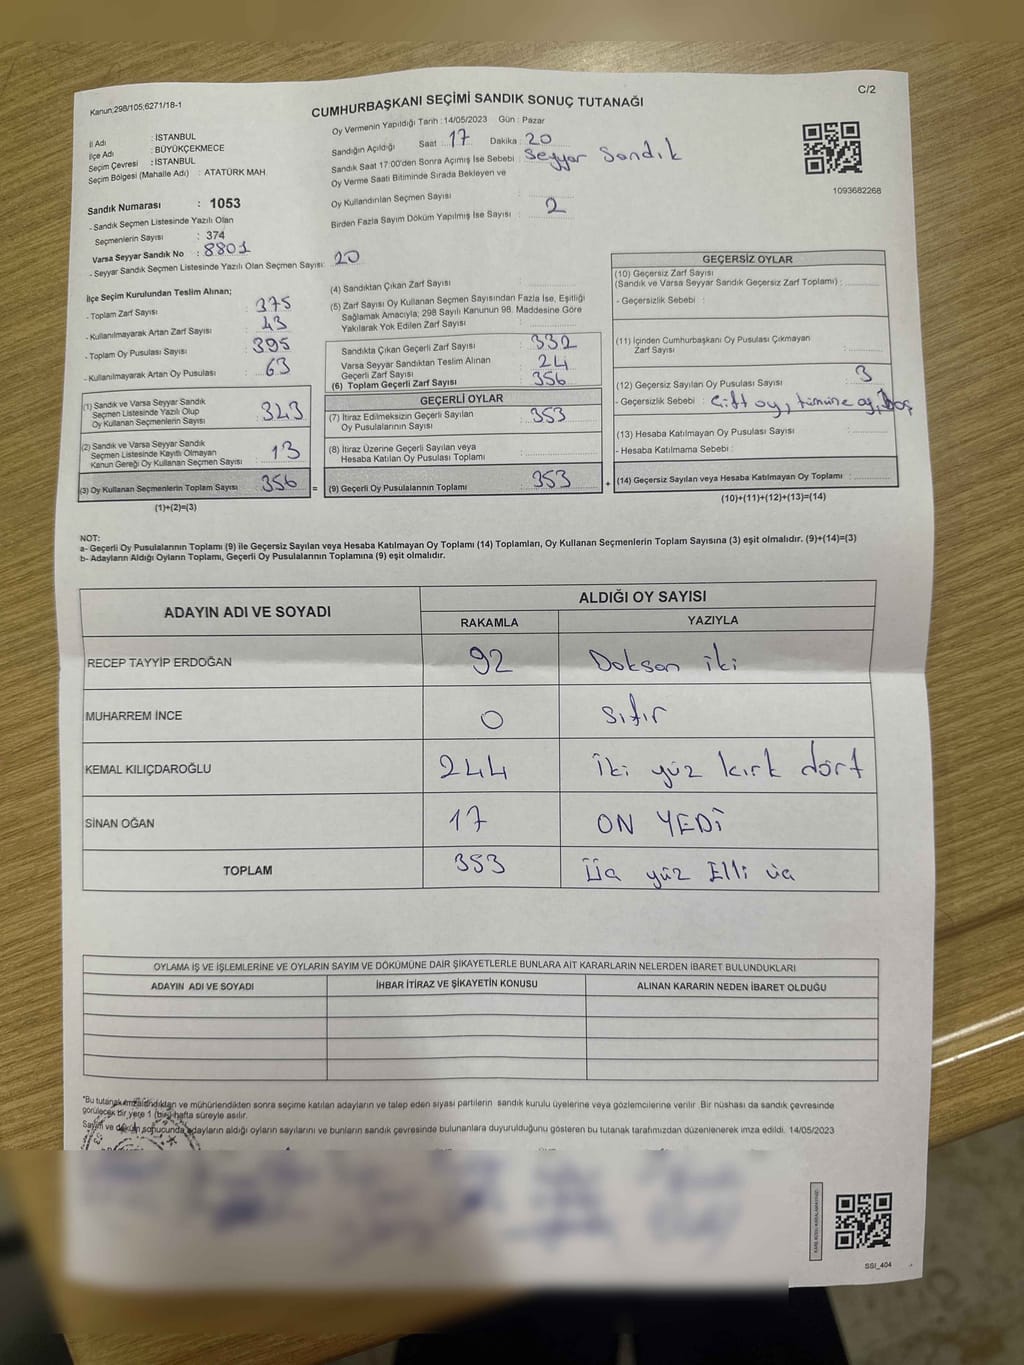 Kanun;298/105;6271/18-1
C/2
CUMHURBAŞKANI SEÇİMİ SANDIK SONUÇ TUTANAĞI
İl Adı : İSTANBUL
İlçe Adı : BÜYÜKÇEKMECE
Seçim Çevresi : İSTANBUL
Seçim Bölgesi (Mahalle Adı) : ATATÜRK MAH.
Sandık Numarası : 1053
- Sandık Seçmen Listesinde Yazılı Olan
Seçmenlerin Sayısı : 374
Varsa Seyyar Sandık No : 8801
- Seyyar Sandık Seçmen Listesinde Yazılı Olan Seçmen Sayısı: 20
Oy Vermenin Yapıldığı Tarih : 14/05/2023 Gün : Pazar
Sandığın Açıldığı Saat : 17 Dakika : 20
Sandık Saat 17:00'den Sonra Açımış İse Sebebi : Seyyar Sandık
Oy Verme Saati Bitiminde Sırada Bekleyen ve
Oy Kullandırılan Seçmen Sayısı :
Birden Fazla Sayım Döküm Yapılmış İse Sayısı : 2
1093682268
İlçe Seçim Kurulundan Teslim Alınan;
- Toplam Zarf Sayısı : 375
- Kullanılmayarak Artan Zarf Sayısı : 43
- Toplam Oy Pusulası Sayısı : 395
- Kullanılmayarak Artan Oy Pusulası : 63
(1) Sandık ve Varsa Seyyar Sandık
Seçmen Listesinde Yazılı Olup
Oy Kullanan Seçmenlerin Sayısı : 343
(2) Sandık ve Varsa Seyyar Sandık
Seçmen Listesinde Kayıtlı Olmayan
Kanun Gereği Oy Kullanan Seçmen Sayısı : 13
(3) Oy Kullanan Seçmenlerin Toplam Sayısı : 356
(1)+(2)=(3)
(4) Sandıktan Çıkan Zarf Sayısı :
(5) Zarf Sayısı Oy Kullanan Seçmen Sayısından Fazla İse, Eşitliği
Sağlamak Amacıyla; 298 Sayılı Kanunun 98. Maddesine Göre
Yakılarak Yok Edilen Zarf Sayısı :
Sandıkta Çıkan Geçerli Zarf Sayısı : 332
Varsa Seyyar Sandıktan Teslim Alınan
Geçerli Zarf Sayısı : 24
(6) Toplam Geçerli Zarf Sayısı : 356
GEÇERLİ OYLAR
(7) İtiraz Edilmeksizin Geçerli Sayılan
Oy Pusulalarının Sayısı : 353
(8) İtiraz Üzerine Geçerli Sayılan veya
Hesaba Katılan Oy Pusulası Toplamı :
= (9) Geçerli Oy Pusulalarının Toplamı : 353
GEÇERSİZ OYLAR
(10) Geçersiz Zarf Sayısı
(Sandık ve Varsa Seyyar Sandık Geçersiz Zarf Toplamı) :
- Geçersizlik Sebebi :
(11) İçinden Cumhurbaşkanı Oy Pusulası Çıkmayan
Zarf Sayısı :
(12) Geçersiz Sayılan Oy Pusulası Sayısı : 3
- Geçersizlik Sebebi : Çift oy, tümüne oy, boş
(13) Hesaba Katılmayan Oy Pusulası Sayısı :
- Hesaba Katılmama Sebebi :
+ (14) Geçersiz Sayılan veya Hesaba Katılmayan Oy Toplamı :
(10)+(11)+(12)+(13)=(14)
NOT:
a- Geçerli Oy Pusulalarının Toplamı (9) ile Geçersiz Sayılan veya Hesaba Katılmayan Oy Toplamı (14) Toplamları, Oy Kullanan Seçmenlerin Toplam Sayısına (3) eşit olmalıdır. (9)+(14)=(3)
b- Adayların Aldığı Oyların Toplamı, Geçerli Oy Pusulalarının Toplamına (9) eşit olmalıdır.
ADAYIN ADI VE SOYADI
ALDIĞI OY SAYISI
RAKAMLA YAZIYLA
RECEP TAYYİP ERDOĞAN 92 Doksan iki
MUHARREM İNCE 0 sıfır
KEMAL KILIÇDAROĞLU 244 İki yüz kırk dört
SİNAN OĞAN 17 ON YEDİ
TOPLAM 353 Üç yüz Elli üç
OYLAMA İŞ VE İŞLEMLERİNE VE OYLARIN SAYIM VE DÖKÜMÜNE DAİR ŞİKAYETLERLE BUNLARA AİT KARARLARIN NELERDEN İBARET BULUNDUKLARI
ADAYIN ADI VE SOYADI İHBAR İTİRAZ VE ŞİKAYETİN KONUSU ALINAN KARARIN NEDEN İBARET OLDUĞU
"Bu tutanak imzalandıktan ve mühürlendikten sonra seçime katılan adayların ve talep eden siyasi partilerin sandık kurulu üyelerine veya gözlemcilerine verilir. Bir nüshası da sandık çevresinde
görülecek bir yere 1 (bir) hafta süreyle asılır.
Sayım ve döküm sonucunda adayların aldığı oyların sayılarını ve bunların sandık çevresinde bulunanlara duyurulduğunu gösteren bu tutanak tarafımızdan düzenlenerek imza edildi. 14/05/2023
SSI_404